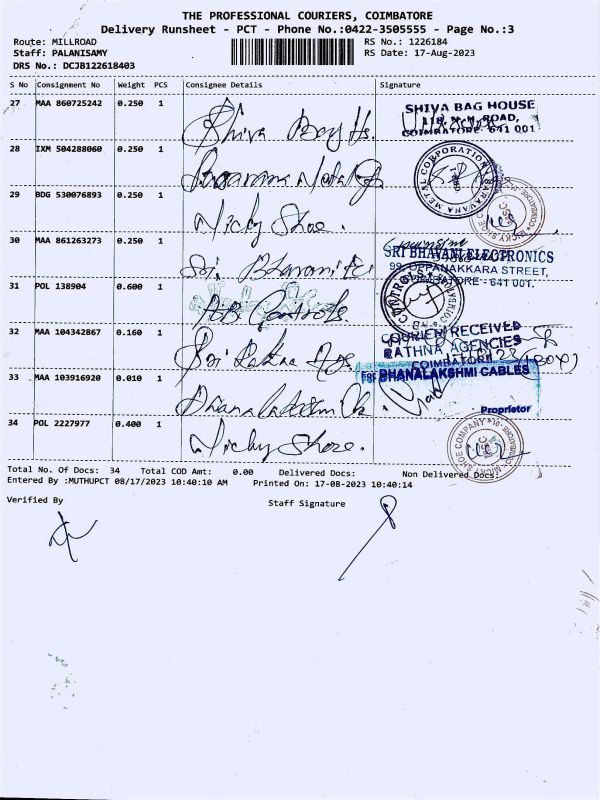 THE PROFESSIONAL COURIERS, COIMBATORE
Delivery Runsheet - PCT - Phone No.:0422-3505555 - Page No.:3
Route: MILLROAD RS No.: 1226184
Staff: PALANISAMY RS Date: 17-Aug-2023
DRS No.: DCJB122618403
S No Consignment No Weight PCS Consignee Details Signature
27 MAA 860725242 0.250 1 Shiva Bag Hs. SHIVA BAG HOUSE
ROAD,
COIMBATORE- 641 001
28 IXM 504288060 0.250 1 Saravana Metal SARAVANA METAL CORPORATION
29 BDG 530076893 0.250 1 Nicky Shoe. NICKY SHOE COMPANY
30 MAA 861263273 0.250 1 Sri. Bhavani Ec SRI BHAVANI ELECTRONICS
99, OPPANAKKARA STREET,
COIMBATORE - 641 001.
31 POL 138904 0.600 1 AB Controls.
32 MAA 104342867 0.160 1 Sri Rathna Ags. COURIER RECEIVED
RATHNA AGENCIES
COIMBATORE
33 MAA 103916920 0.010 1 Dhanalakshmi Cb. For DHANALAKSHMI CABLES
Proprietor
34 POL 2227977 0.400 1 Nicky Shoe. NICKY SHOE COMPANY
Total No. Of Docs: 34 Total COD Amt: 0.00 Delivered Docs: Non Delivered Docs:
Entered By :MUTHUPCT 08/17/2023 10:40:10 AM Printed On: 17-08-2023 10:40:14
Verified By Staff Signature